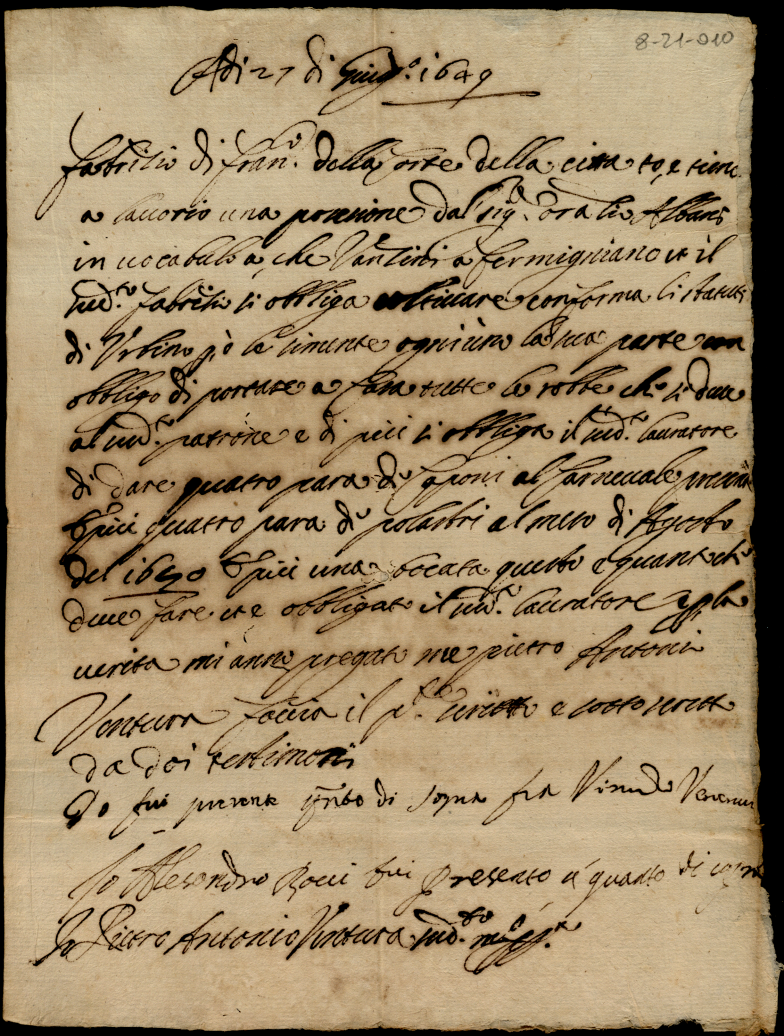 8-21-010
Adi 27 di Giug.º 1649
fabritio di fran.º della Corte della cita to, e tiene
a lauorio una porsione dal Sig.ʳ Oratio Albani
in uocabulo a che Vantini a fermigniano et il
sud.to fabritio si obbliga coltiuare conforma li statuti
di Vrbino p̱ò la simente ogniuno la sua parte con
obbligo di portare a Casa tutte le robbe che si deue
al sud.to patrone e di piu si obbliga il sud.to lauratore
di dare quatro para di Caponi al Carneuale
e piu quatro para di polastri al mese di Agosto
del 1650 e piu una questo e quanto che
deue fare et e obbligato il sud.to lauratore e p̱ la
uerita mi anno pregato me pietro Antonio
Ventura facia il p.te scritto e sotto scritto
da doi testimoni
Io fui presente q̱nto di sopra fra
Io Alesandro Rocci fui presente a quanto di sopra
Io Pietro Antonio Ventura sud.to